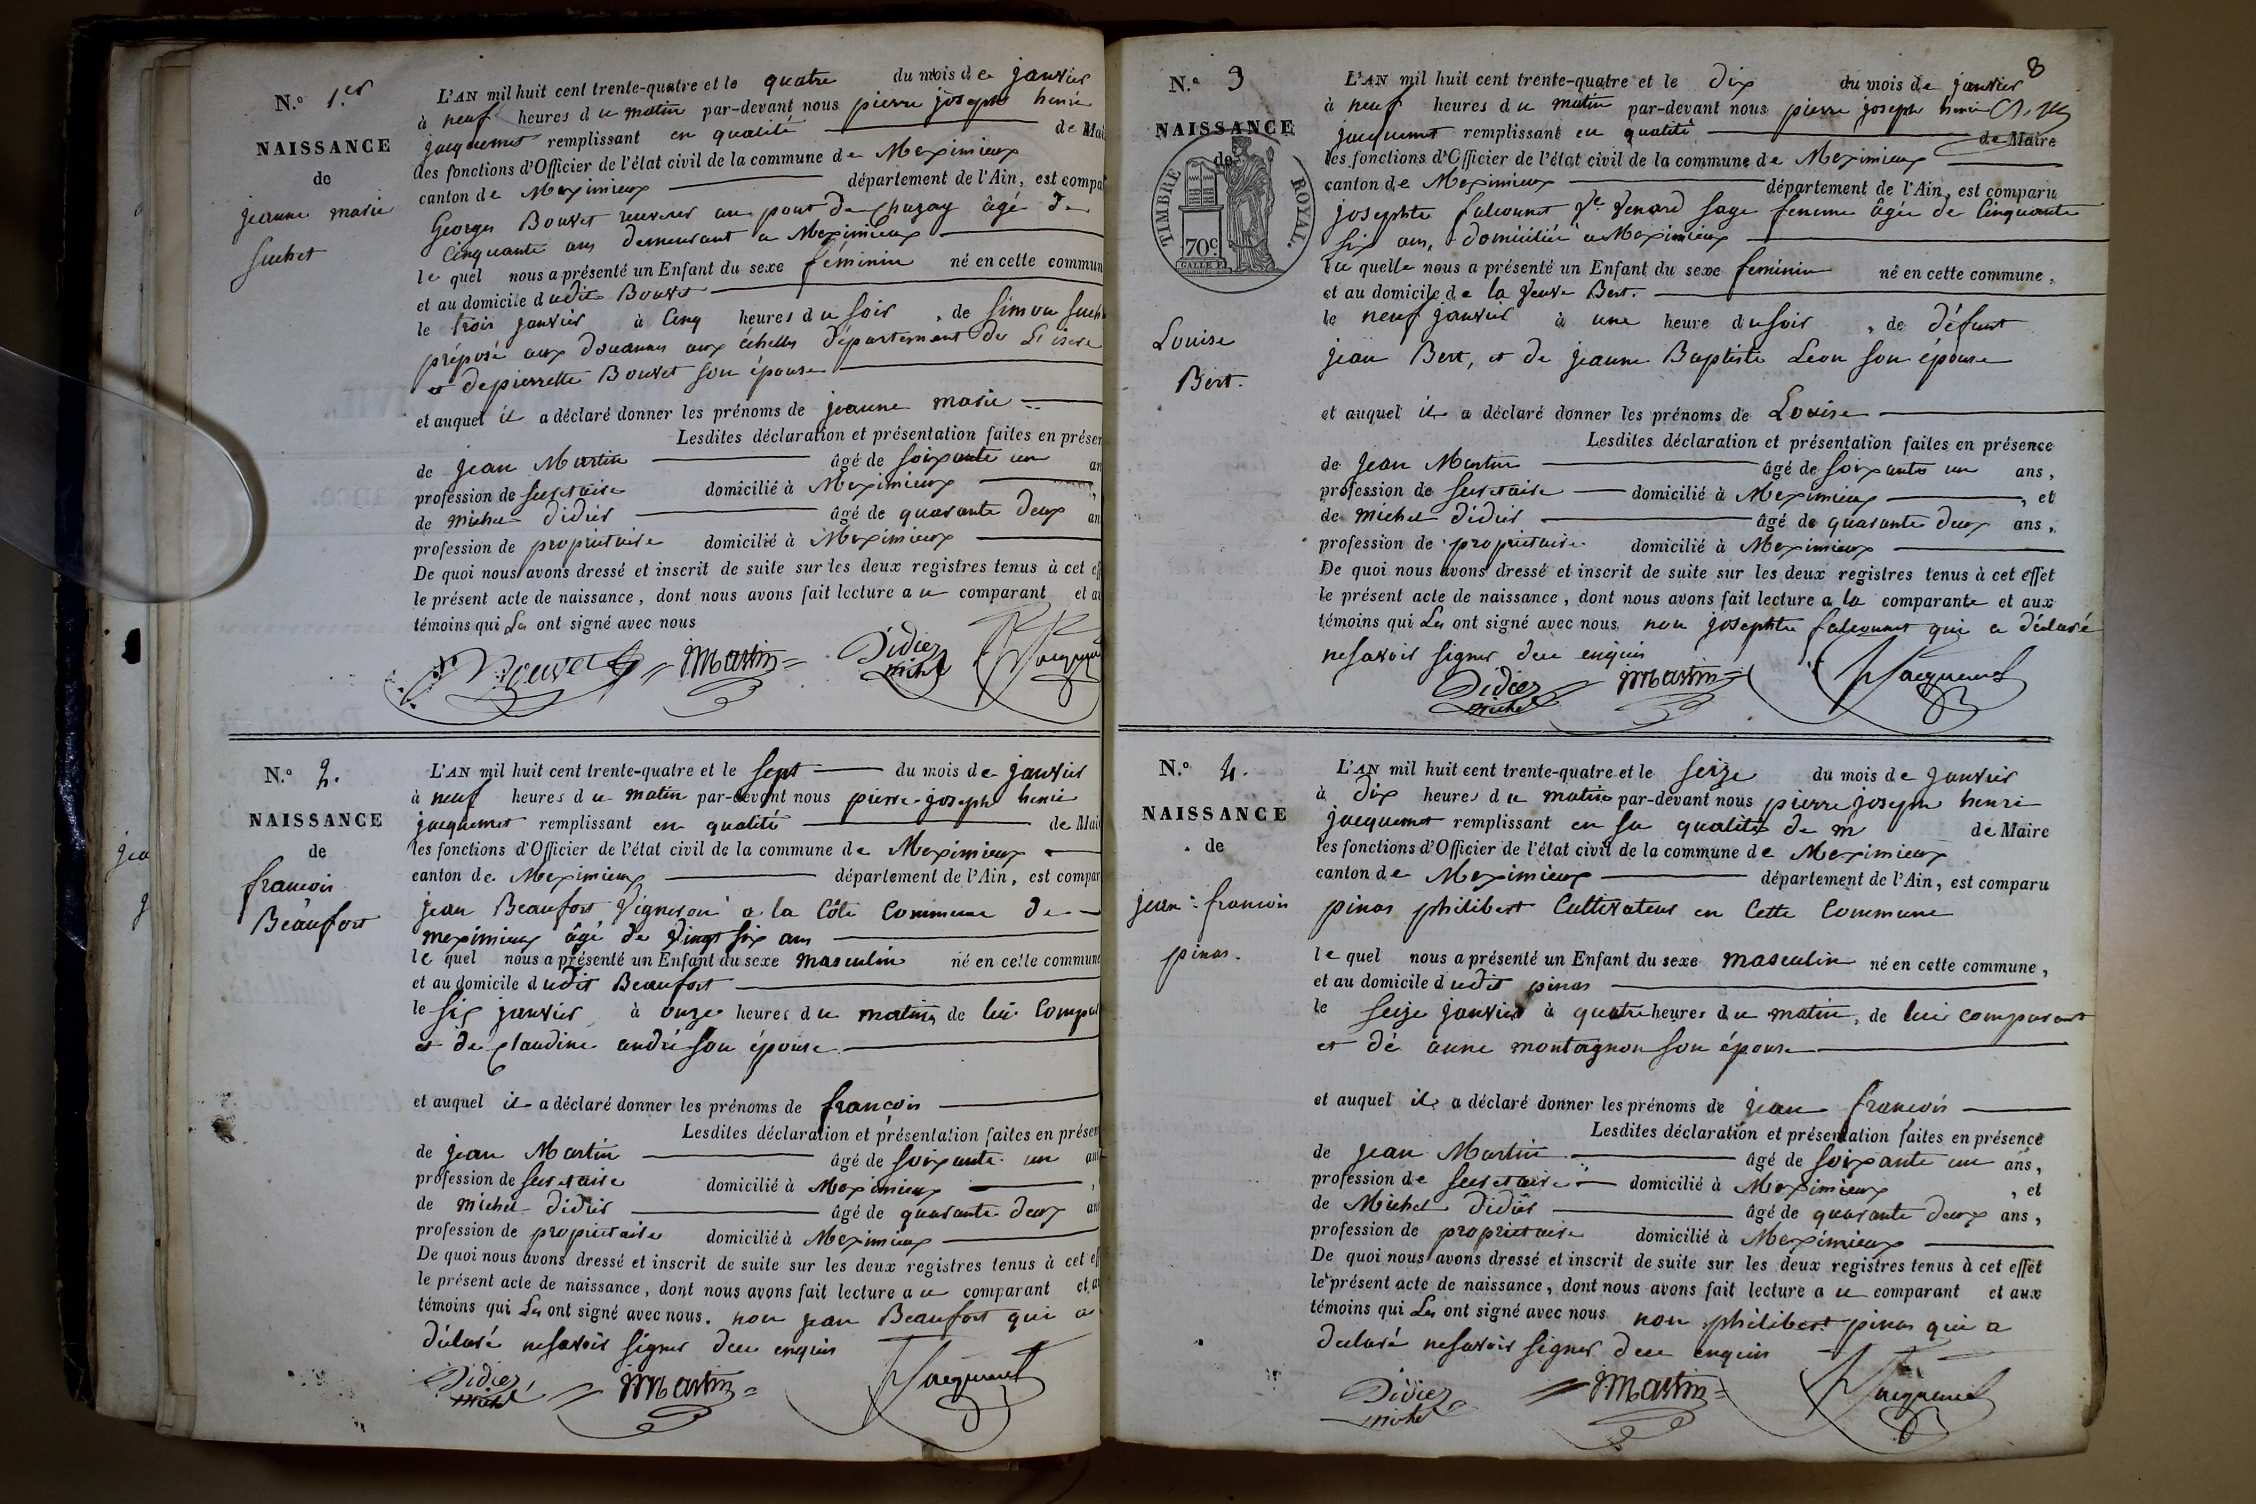 N.o 1.er
NAISSANCE
de
jeanne marie
suchet
L'AN mil huit cent trente-quatre et le quatre du mois de janvier
à neuf heures du matin par-devant nous pierre joseph henri
jacquemet remplissant en qualité de Mai
des fonctions d'Officier de l'état civil de la commune de Meximieux
canton de Meximieux département de l'Ain, est compa
Georges Bouvet receveur au pont de Chazay âgé de
Cinquante ans demeurant a Meximieux
le quel nous a présenté un Enfant du sexe féminin né en cette commun
et au domicile dudit Bouvet
le trois janvier à Cinq heures du soir, de simon such
préposé aux douannes aux échelles département de L'isere
et de pierrette Bouvet son épouse
et auquel il a déclaré donner les prénoms de jeanne marie
Lesdites déclaration et présentation faites en présen
de jean Martin âgé de soixante un an
profession de secretaire domicilié à Meximieux
de michel didier âgé de quarante deux an
profession de proprietaire domicilié à Meximieux
De quoi nous avons dressé et inscrit de suite sur les deux registres tenus à cet eff
le présent acte de naissance, dont nous avons fait lecture au comparant et au
témoins qui Les ont signé avec nous
Bouvet JMartin Didier michel Jacquemet
N.o 2.
NAISSANCE
de
francois
Beaufort
L'AN mil huit cent trente-quatre et le sept du mois de janvier
à neuf heures du matin par-devant nous pierre-joseph henri
jacquemet remplissant en qualité de Mai
les fonctions d'Officier de l'état civil de la commune de Meximieux
canton de Meximieux département de l'Ain, est compar
jean Beaufort Vigneron a la Côte Commune de
meximieux âgé de Vingt six ans
le quel nous a présenté un Enfant du sexe masculin né en cette commune
et au domicile dudit Beaufort
le six janvier à onze heures du matin, de lui Compar
et de Claudine andré son épouse
et auquel il a déclaré donner les prénoms de françois
Lesdites déclaration et présentation faites en présen
de jean Martin âgé de soixante un ans
profession de secretaire domicilié à Meximieux
de michel didier âgé de quarante deux an
profession de proprietaire domicilié à Meximieux
De quoi nous avons dressé et inscrit de suite sur les deux registres tenus à cet eff
le présent acte de naissance, dont nous avons fait lecture au comparant et au
témoins qui Les ont signé avec nous. non jean Beaufort qui a
déclaré ne savoir signer de ce enquis
Didier michel JMartin Jacquemet
8
N.o 3
NAISSANCE
de
TIMBRE ROYAL.
70c.
Louise
Bert.
L'AN mil huit cent trente-quatre et le dix du mois de janvier
à neuf heures du matin par-devant nous pierre joseph henri
jacquemet remplissant en qualité de Maire
les fonctions d'Officier de l'état civil de la commune de Meximieux
canton de Meximieux département de l'Ain, est comparu
josephte falconnet Ve Venard sage femme âgée de Cinquante
six ans, domiciliée a Meximieux
la quelle nous a présenté un Enfant du sexe feminin né en cette commune,
et au domicile de la Veuve Bert.
le neuf janvier à une heure du soir, de défunt
jean Bert, et de jeanne Baptiste Leon son épouse
et auquel il a déclaré donner les prénoms de Louise
Lesdites déclaration et présentation faites en présence
de jean Martin âgé de soixante un ans,
profession de secretaire domicilié à Meximieux, et
de michel didier âgé de quarante deux ans,
profession de proprietaire domicilié à Meximieux
De quoi nous avons dressé et inscrit de suite sur les deux registres tenus à cet effet
le présent acte de naissance, dont nous avons fait lecture a la comparante et aux
témoins qui Les ont signé avec nous non josephte falconnet qui a déclaré
ne savoir signer de ce enquis
Didier michel JMartin Jacquemet
N.o 4.
NAISSANCE
de
jean-francois
pinas.
L'AN mil huit cent trente-quatre et le seize du mois de janvier
à dix heures du matin par-devant nous pierre joseph henri
jacquemet remplissant en sa qualité de m de Maire
les fonctions d'Officier de l'état civil de la commune de Meximieux
canton de Meximieux département de l'Ain, est comparu
pinas philibert Cultivateur en Cette Commune
le quel nous a présenté un Enfant du sexe masculin né en cette commune,
et au domicile dudit pinas
le seize janvier à quatre heures du matin, de lui comparant
et de anne montagnon son épouse
et auquel il a déclaré donner les prénoms de jean françois
Lesdites déclaration et présentation faites en présence
de jean Martin âgé de soixante un ans,
profession de secretaire domicilié à Meximieux, et
de Michel didier âgé de quarante deux ans,
profession de proprietaire domicilié à Meximieux
De quoi nous avons dressé et inscrit de suite sur les deux registres tenus à cet effet
le présent acte de naissance, dont nous avons fait lecture au comparant et aux
témoins qui Les ont signé avec nous non philibert pinas qui a
declaré ne savoir signer de ce enquis
Didier michel JMartin Jacquemet